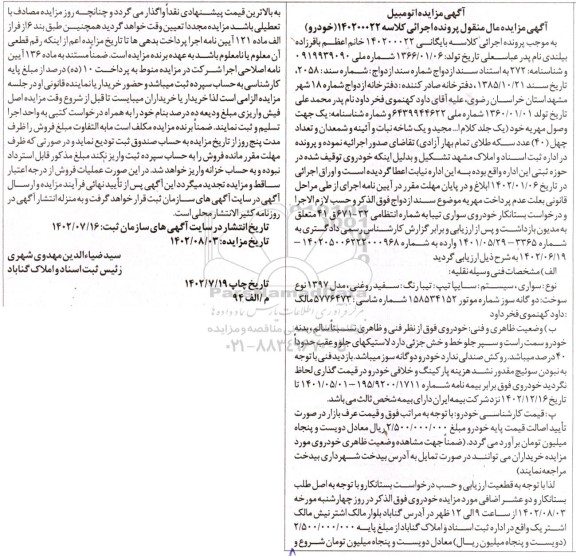 آگهی مزایده اتومبیل
آگهی مزایده مال منقول پرونده اجرائی کلاسه ۱۴۰۲۰۰۰۲۲ (خودرو)
به موجب پرونده اجرائی کلاسه بایگانی ۱۴۰۲۰۰۰۲۲ خانم اعظم باقرزاده
بیلندی نام پدر عباسعلی تاریخ تولد: ۱۳۶۶/۰۱/۰۶ شماره ملی ۰۹۱۹۹۳۹۰۹۰
و شناسنامه: ۲۷۲ به استناد سند ازدواج شماره سند ازدواج: شماره سند: ۲۰۵۸،
تاریخ سند: ۱۳۸۵/۱۰/۲۱، دفترخانه صادر کننده: دفترخانه ازدواج شماره ۱۸ شهر
مشهد استان خراسان رضوی، علیه آقای داود کهنموی فخر داود نام پدر محمد علی
تاریخ تولد: ۱۳۶۰/۰۱/۰۱ شماره ملی ۶۴۳۹۹۴۴۶۲۲ و شماره شناسنامه: یک جهت
وصول مهریه خود (یک جلد کلام ا... مجید و یک شاخه نبات و آئینه و شمعدان و تعداد
چهل (۴۰) عدد سکه طلای تمام بهار آزادی) تقاضای صدور اجرائیه نموده و پرونده
در اداره ثبت اسناد و املاک مشهد تشکیل و بدلیل اینکه خودروی توقیف شده در
حوزه ثبتی این اداره واقع بوده به این اداره نیابت اعطا گردیده است و اوراق اجرائی
در تاریخ ۱۴۰۲/۰۱/۰۶ ابلاغ و در پایان مهلت مقرر در آیین نامه اجرای از طی مراحل
قانونی بعلت عدم پرداخت مهریه موضوع سند ازدواج فوق الذکر و حسب لازم الاجرا
و درخواست بستانکار خودروی سواری تیبا به شماره انتظامی ۳۲-۶۷۱ق۴۱ متعلق
به مدیون بازداشت و پس از ارزیابی و برابر گزارش کارشناس رسمی دادگستری به
شماره ۳۳۶۵ – ۱۴۰۱/۰۵/۲۹ وارده به شماره ۱۴۰۲۰۵۰۰۶۲۲۲۰۰۰۹۶۸ –
۱۴۰۲/۰۶/۱۹ به شرح ذیل ارزیابی گردید
الف) مشخصات فنی وسیله نقلیه:
نوع: سواری، سیستم: سایپا تیپ: تیبا رنگ: سفید روغنی، مدل ۱۳۹۷ نوع
سوخت: دو گانه سوز شماره موتور ۱۵۸۵۳۴۱۵۲ شماره شاسی: ۵۷۷۶۴۷۳ مالک
: داود کهنموی فخر داود
ب) وضعیت ظاهری و فنی: خودروی فوق از نظر فنی و ظاهری نسبتا سالم، بدنه
خودرو سمت راست و سپر جلو خط و خش جزئی دارد لاستیکهای جلو و عقب حدودا
۴۰ درصد میباشد. روکش صندلی ندارد خودرو دو گانه سوز میباشد. بازدید فنی با توجه
به نبودن سوئیچ مقدور نشد هزینه پارکینگ و خلافی خودرو در قیمت گذاری لحاظ
نگردید خودروی فوق برابر بیمه نامه شماره ۱۹۵/۹۲۰۰/۱۷۱۱-۱۴۰۱/۰۵/۰۱
تاریخ ۱۴۰۲/۱۲/۱۶ نزد شرکت بیمه ایران دارای بیمه شخص ثالث می باشد.
پ: قیمت کارشناسی خودرو: با توجه به مراتب فوق و قیمت عرف بازار در صورت
تأیید اصالت قیمت پایه خودرو مبلغ ۲/۵۰۰/۰۰۰/۰۰۰ ریال معادل دویست و پنجاه
میلیون تومان برآورد می گردد. (ضمناً جهت مشاهده وضعیت ظاهری خودروی مورد
مزایده خریداران می توانند در صورت تمایل به آدرس بیدخت شهرداری بیدخت
مراجعه نمایند)
لذا با توجه به قطعیت ارزیابی و حسب درخواست بستانکار و با توجه به اصل طلب
بستانکار و دو عشر اضافی مورد مزایده خودروی فوق الذکر در روز چهارشنبه مورخه
۱۴۰۲/۰۸/۰۳ از ساعت ۹ الی ۱۲ ظهر در آدرس گناباد بلوار مالک اشتر نبش مالک
اشتر یک واقع در اداره ثبت اسناد و املاک گناباد از مبلغ پایه ۲/۵۰۰/۰۰۰/۰۰۰
(دویست و پنجاه میلیون ریال) معادل دویست و پنجاه میلیون تومان شروع و
به بالاترین قیمت پیشنهادی نقدا واگذار می گردد و چنانچه روز مزایده مصادف با
تعطیلی باشد مزایده مجددا تعیین وقت خواهد گردید همچنین طبق بند ۶ از فراز
الف ماده ۱۲۱ آیین نامه اجرا پرداخت بدهی ها تا تاریخ مزایده اعم از اینکه رقم قطعی
آن معلوم یا نامعلوم باشد به عهده برنده مزایده است. ضمناً مستند به ماده ۱۳۶ آیین
نامه اصلاحی اجرا شرکت در مزایده منوط به پرداخت ۱۰ (ده) درصد از مبلغ پایه
کارشناسی به حساب سپرده ثبت میباشد و حضور خریدار یا نماینده قانونی او در جلسه
مزایده الزامی است لذا خریدار یا خریداران میبایست تا قبل از شروع وقت مزایده اصل
فیش واریزی مبلغ ودیعه ده درصد بنام خود را به همراه درخواست کتبی به واحد اجرا
تسلیم و ثبت نمایند. ضمناً برنده مزایده مکلف است مابه التفاوت مبلغ فروش را ظرف
مدت پنج روز از تاریخ مزایده به حساب صندوق ثبت تودیع نماید و در صورتی که ظرف
مهلت مقرر مانده فروش را به حساب سپرده ثبت واریز نکند مبلغ مذکور قابل استرداد
نبوده و به حساب خزانه واریز خواهد شد. در این صورت عملیات فروش از درجه اعتبار
ساقط و مزایده تجدید میگردد این آگهی پس از تأیید نهائی فرآیند مزایده و ارسال
آگهی در سایت آگهی های سازمان ثبت قرار خواهد گرفت و به منزله انتشار آگهی در
روزنامه کثیر الانتشار محلی است.
تاریخ انتشار در سایت آگهی های سازمان ثبت: ۱۴۰۲/۰۷/۱۶
تاریخ مزایده: ۱۴۰۲/۰۸/۰۳
سید ضیاءالدین مهدوی شهری
رئیس ثبت اسناد و املاک گناباد
تاریخ چاپ ۱۴۰۲/۷/۱۹
م/الف ۹۴
۰۲۱-۸۸۳۴۹۶